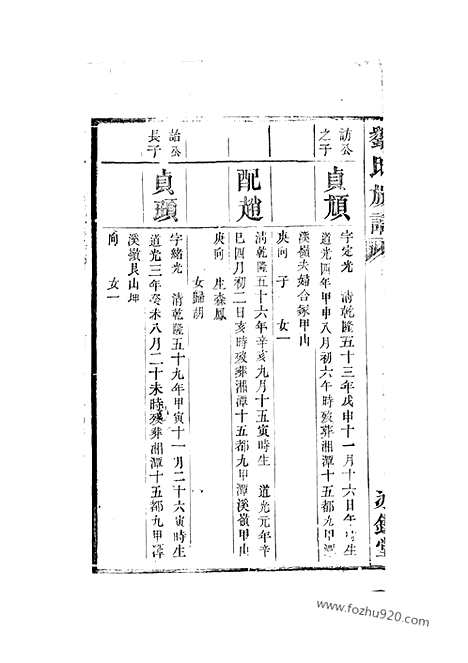 劉氏族譜
訪公
之子
貞頎
字定光 清乾隆五十三年戊申十一月十六日午時生
道光四年甲申八月初六午時歿葬湘潭十五都九甲潭
溪嶺夫婦合冢甲山
庚向 子 女一
配趙
清乾隆五十六年辛亥九月十五寅時生 道光元年辛
巳四月初二日亥時歿葬湘潭十五都九甲潭溪嶺甲山
庚向 生森鳳
女歸胡
詒公
長子
貞頊
字緒光 清乾隆五十九年甲寅十一月二十六寅時生
道光三年癸未八月二十未時歿葬湘潭十五都九甲潭
溪嶺艮山坤
向 女一
www.fozhu920.com